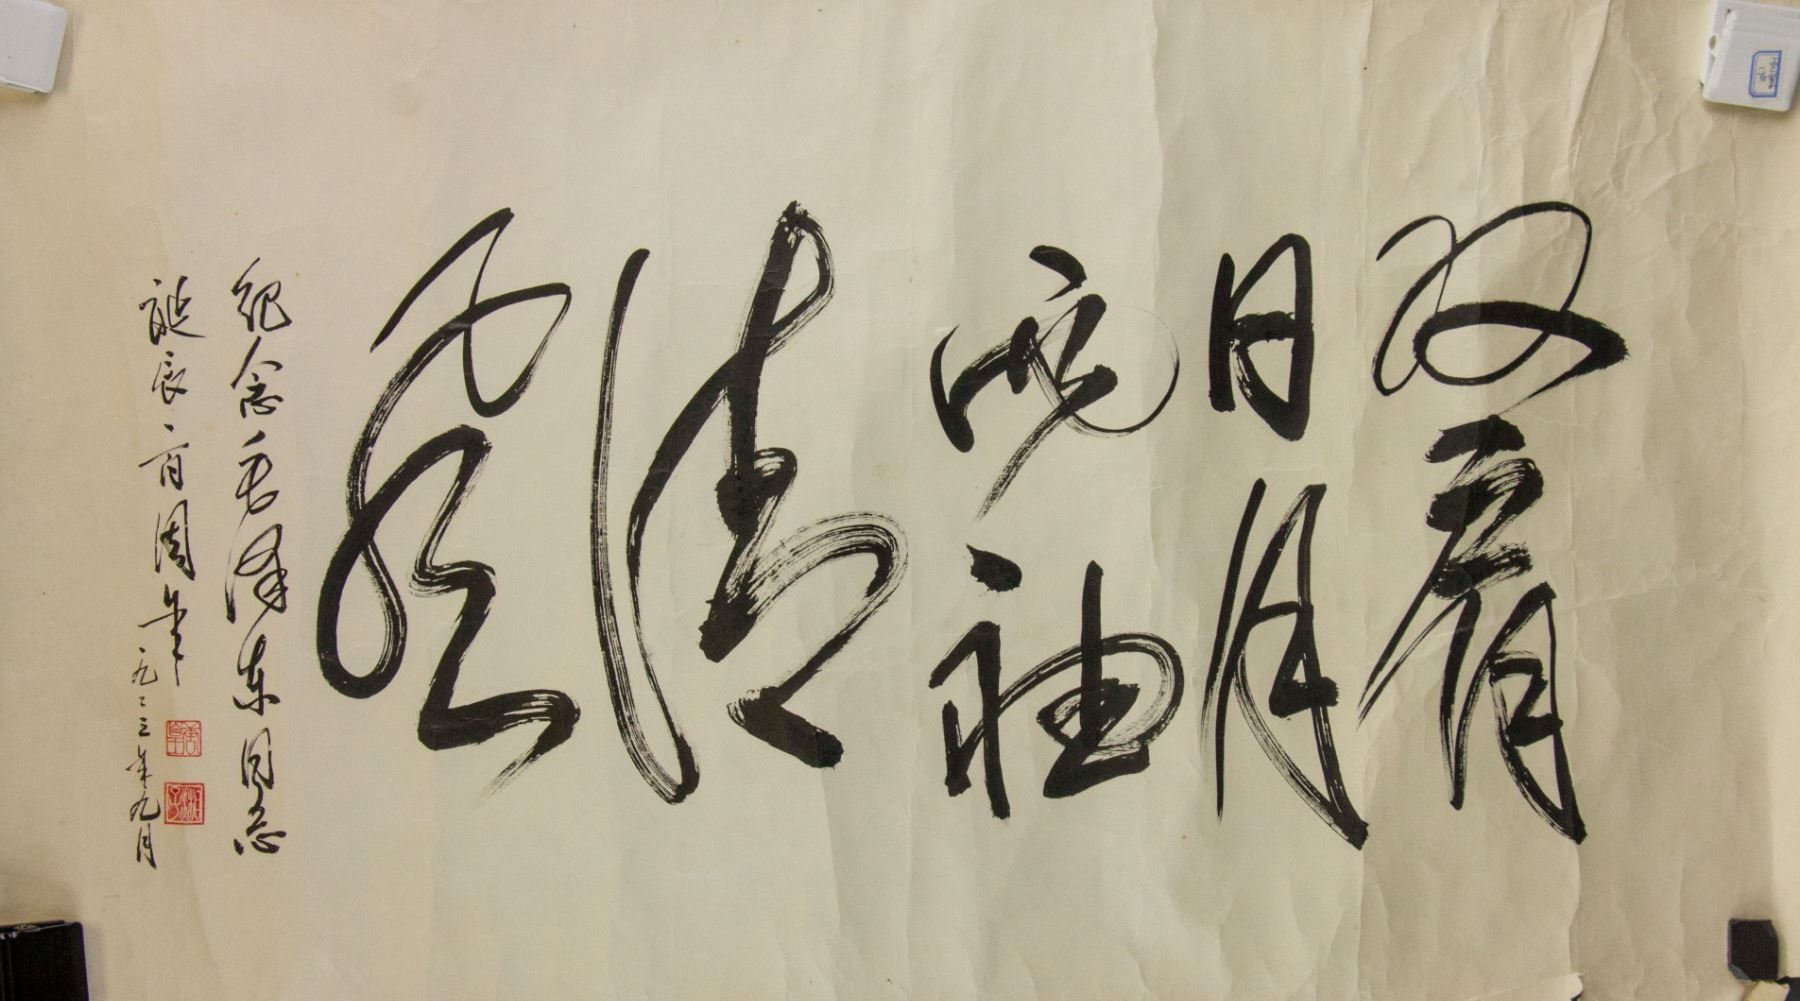 双肩
明月
两袖
清
风
纪念毛泽东同志
诞辰一百周年 一九九三年九月